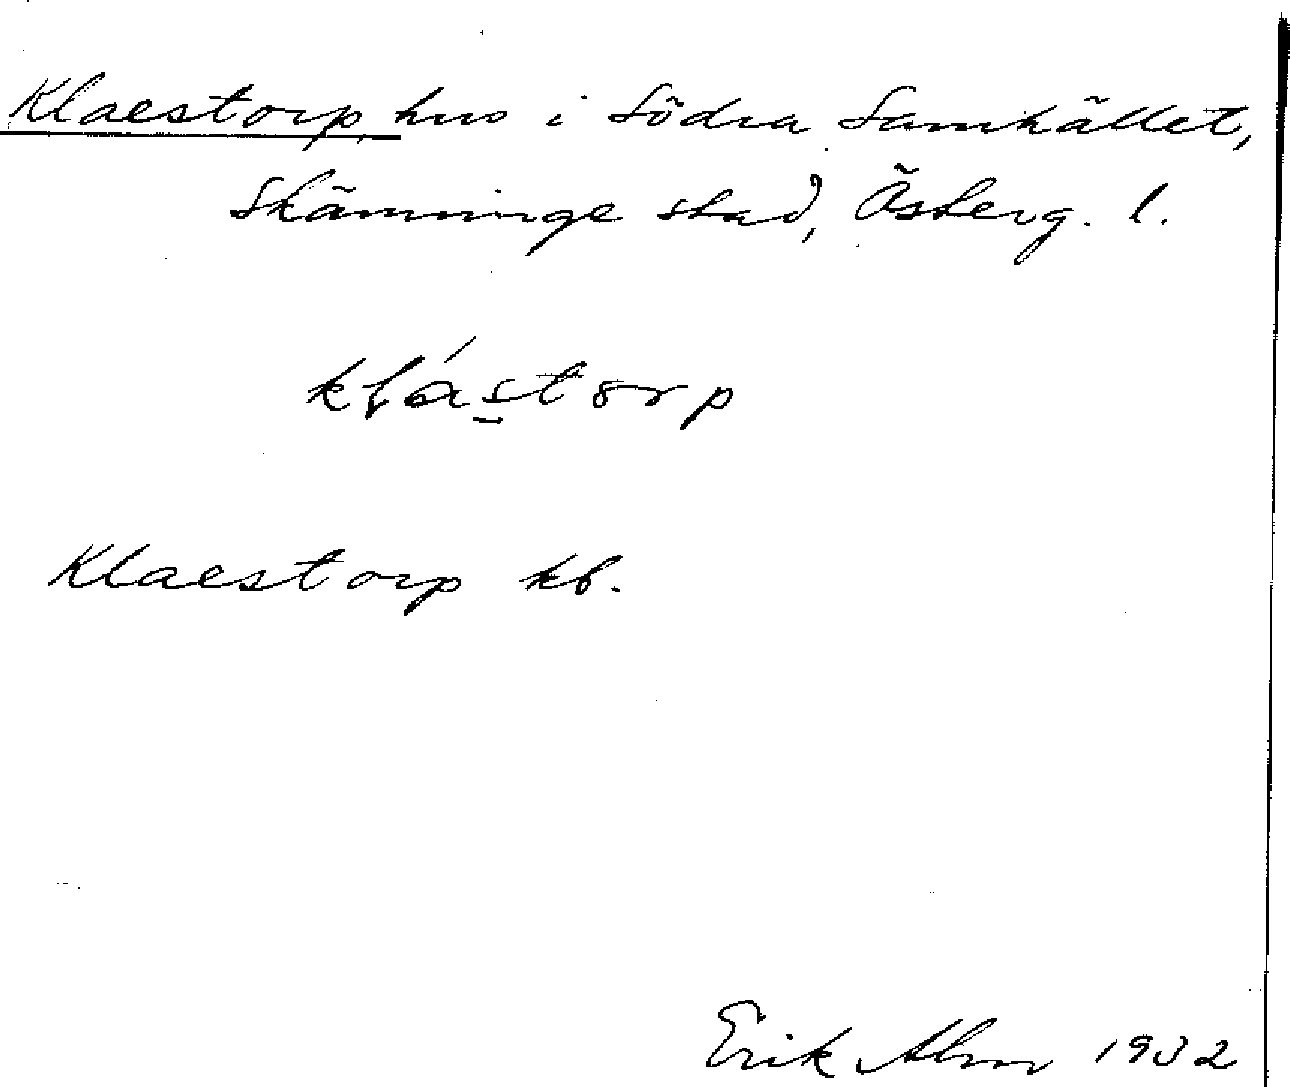 Klaestorp hus i Södra Samhället,
Skänninge stad, Österg. l.
klástorp
Klaestorp kb.
Erik Alm 1932